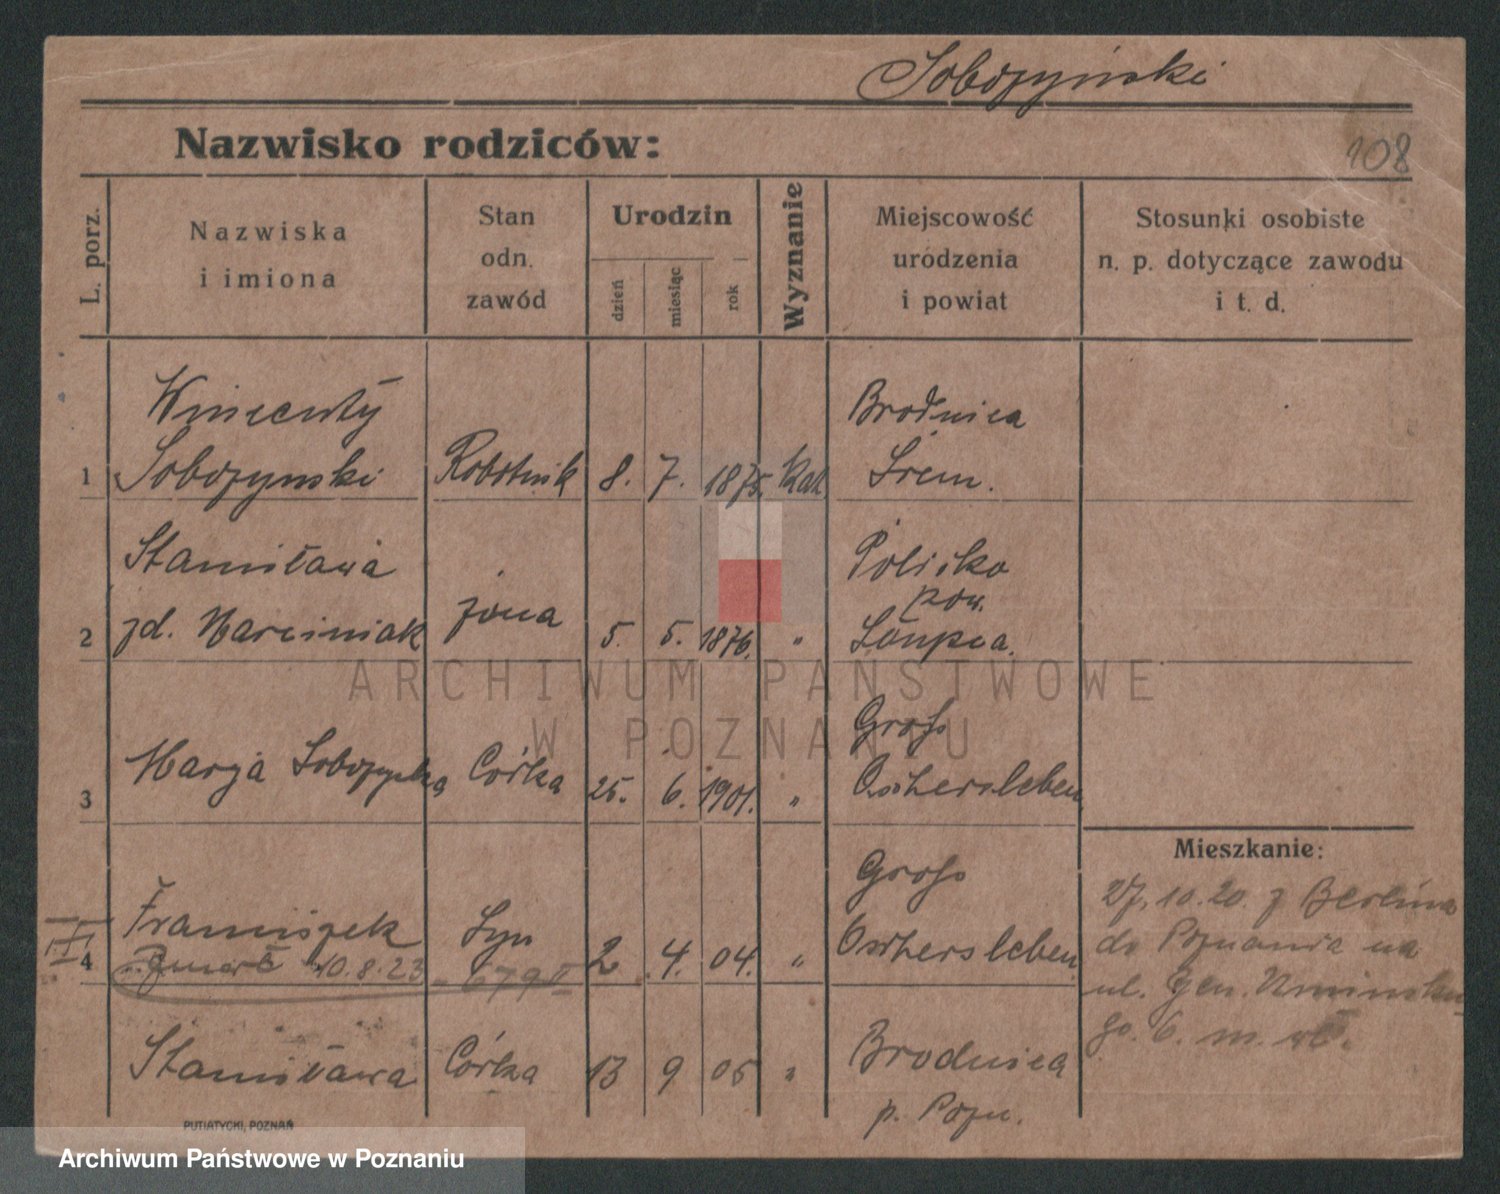 Sobozyński
Nazwisko rodziców:
108
L. porz.
Nazwiska
i imiona
Stan
odn.
zawód
Urodzin
dzień
miesiąc
rok
Wyznanie
Miejscowość
urodzenia
i powiat
Stosunki osobiste
n. p. dotyczące zawodu
i t. d.
1
Wincenty
Sobozynski
Robotnik
8. 7. 1875. Kat
Brodnica
Śrem.
2
Stanisława
zd. Marciniak
żona
5. 5. 1876. "
pow.
Słupca.
3
Marja Sobozynska
Córka
25. 6. 1901. "
Gross
Oschersleben
4
Franciszek
Zmarł 10.8.23 - 679 II
Syn
2 4. 04. "
Gross
Oschersleben
Stanisława
Córka
13 9 05 "
Brodnica
p. Pozn.
Mieszkanie:
27.10.20. z Berlina
do Poznania na
ul. Gen. Umińskie-
go. 6. m.
PUTIATYCKI, POZNAŃ
ARCHIWUM PAŃSTWOWE
W POZNANIU
Archiwum Państwowe w Poznaniu